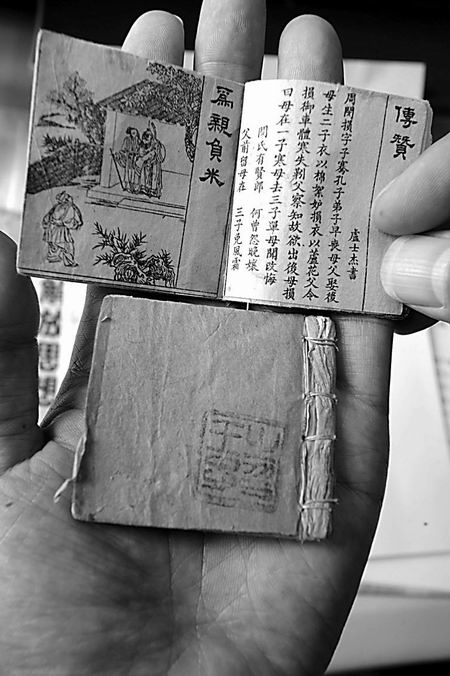 傳贊
盧士杰書
周閔損字子騫孔子弟子早喪母父娶後
母生二子衣以棉絮妒損衣以蘆花父令
損御車體寒失靷父察知故欲出後母損
曰母在一子寒母去三子單母聞改悔
閔氏有賢郎 何曾怨晚孃
父前留母在 三子免風霜
爲親負米